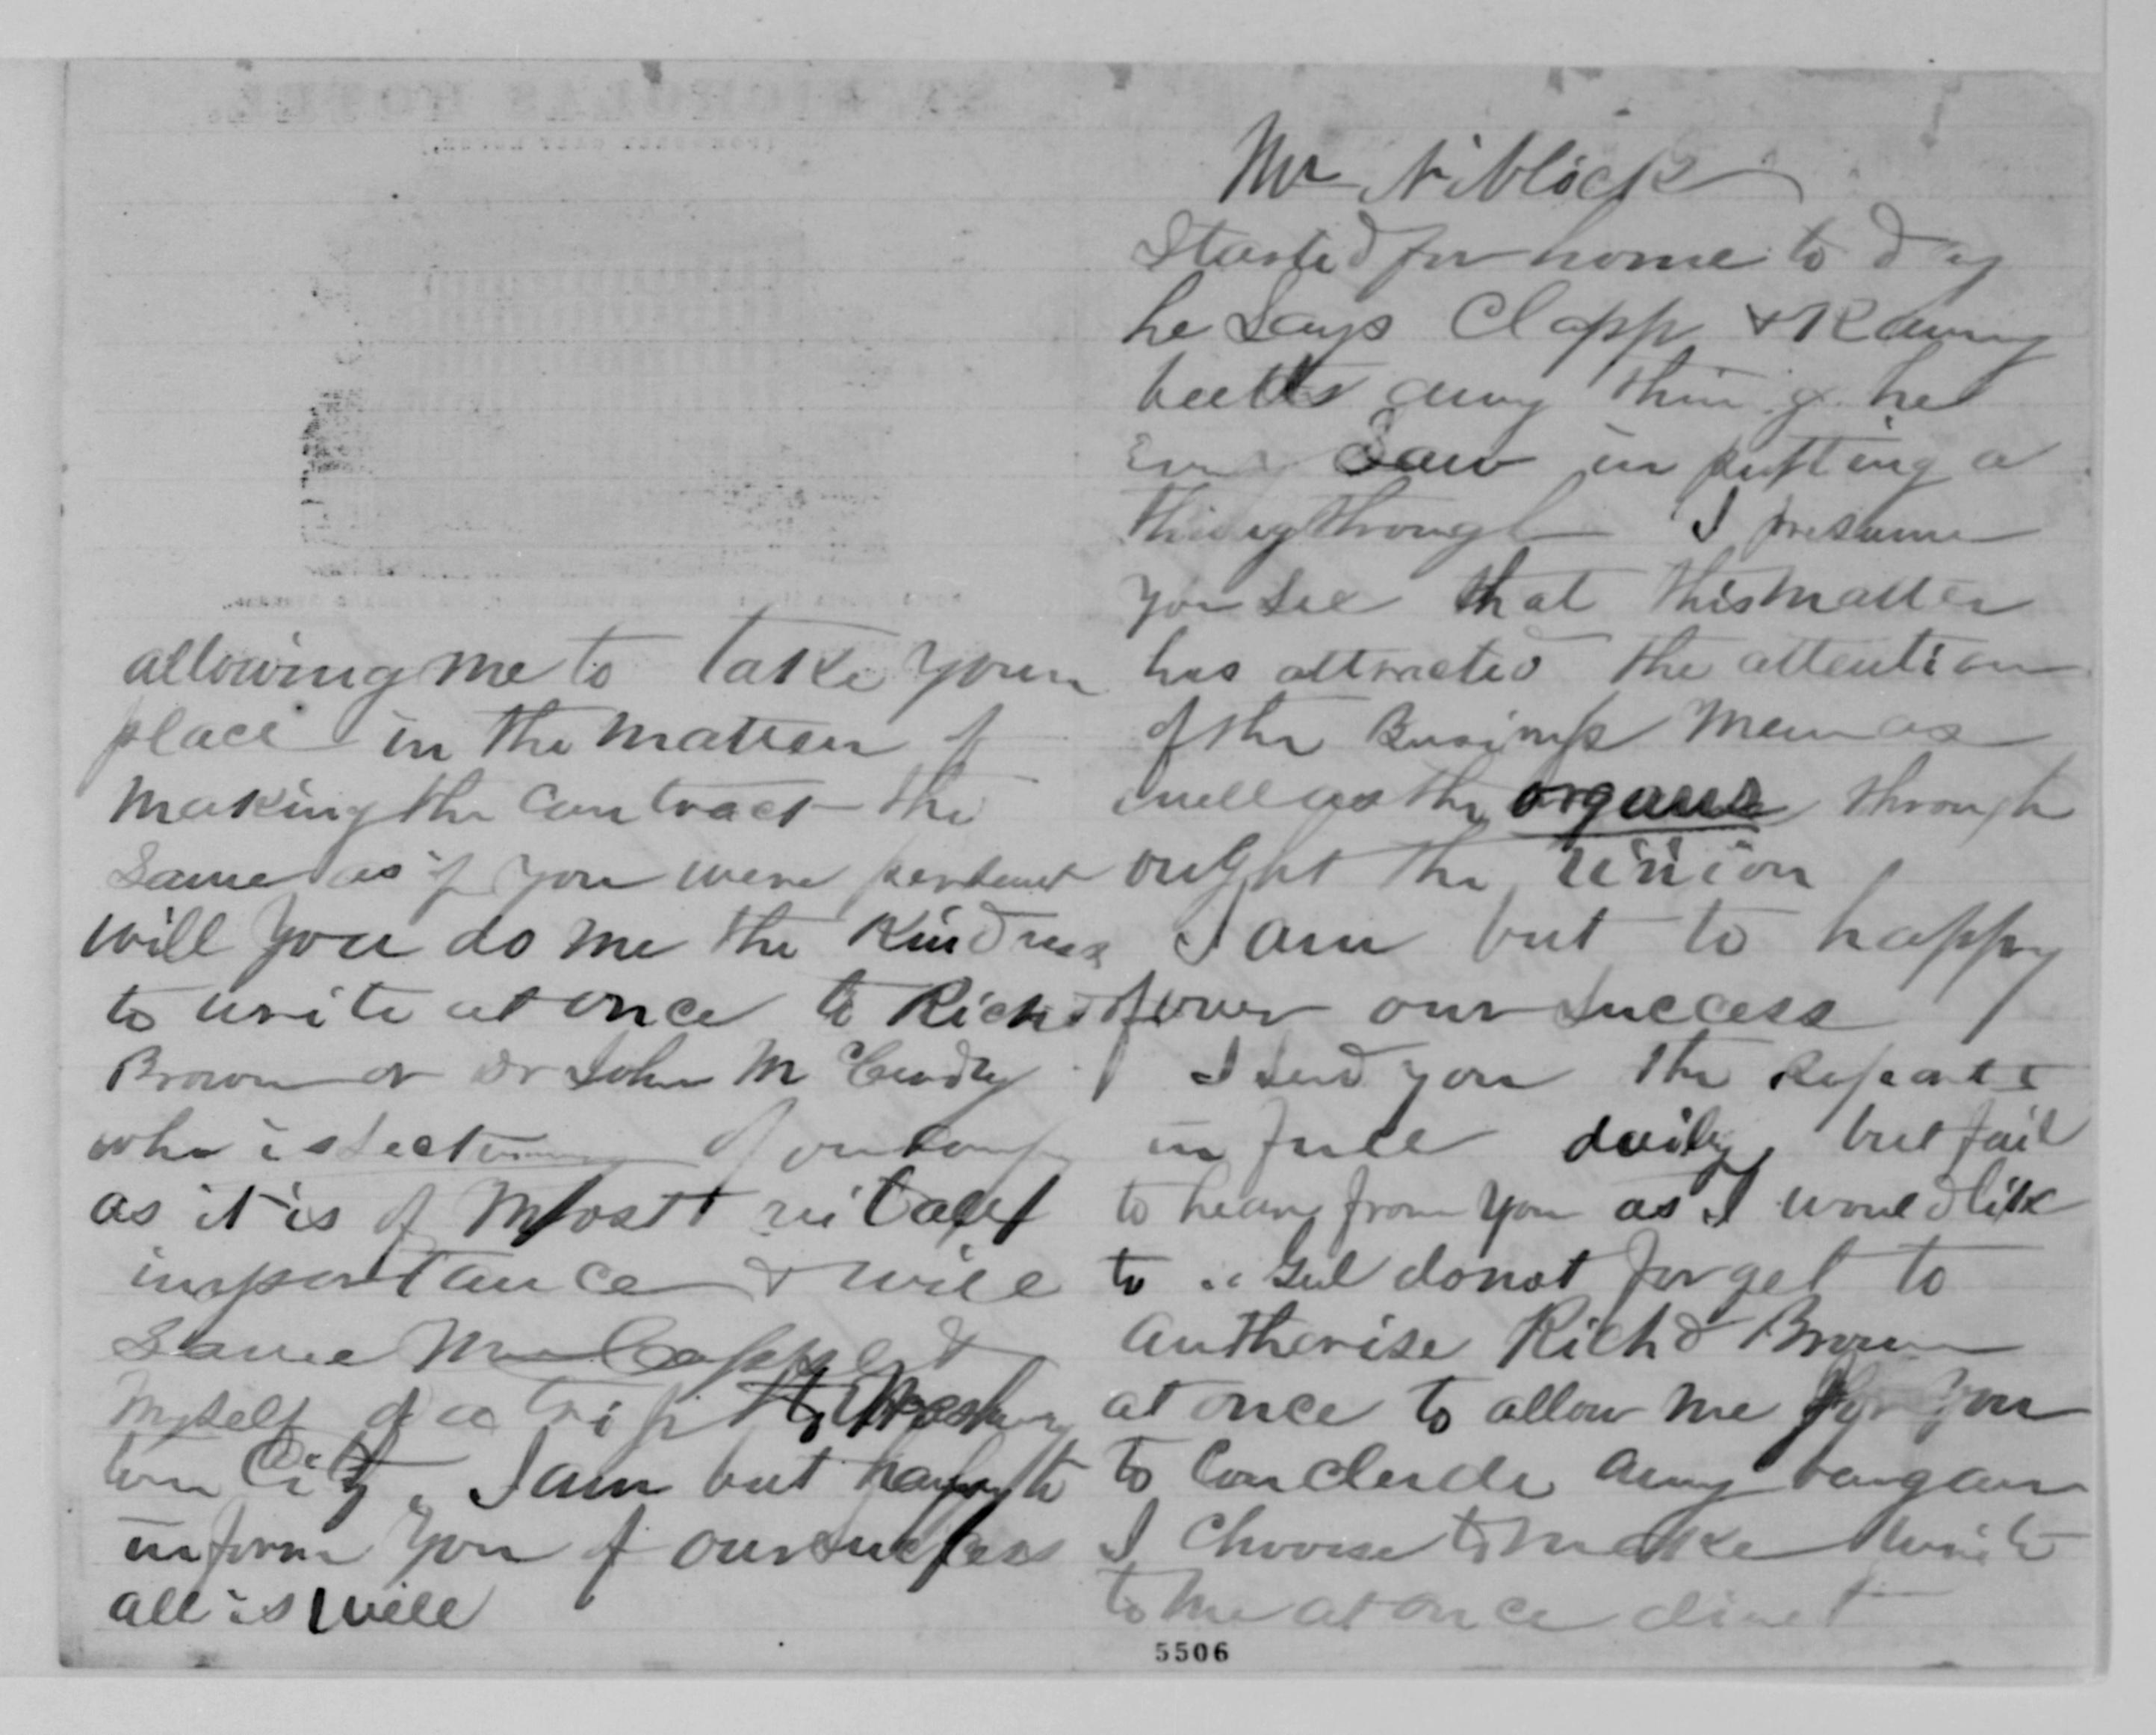 allowing me to take your
place in the matter of
making the Contract the
Same as if you were
will you do me the Kindness
to write at once to Richd
Brown or Dr John M
who is of our
as it is of Most
importance & will
Save Mr &
Myself of a trip to Washing
ton City. I am but happy to
inform you of our success
all is well
Mr Niblock
Started for home to day
he Says Clapp &
beets any thing he
Ever Saw in putting a
thing through I presume
you see that this matter
has attracted the attention
of the Business Men as
well as the organs through
ought the union
I am but to happy
our Success
I send you the Reports
in full daily, but fail
to hear from you as I would like
to do not forget to
Autherise Richd Brown
at once to allow me for you
to Conclude any bargain
I Choose to make write
to me at once direct
5506